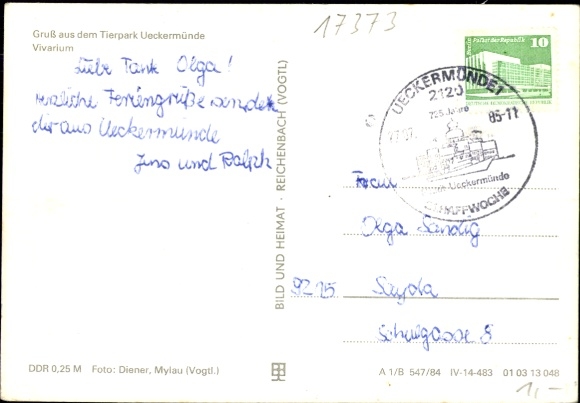 17373
Gruß aus dem Tierpark Ueckermünde
Vivarium
Liebe Tante Olga!
herzliche Feriengrüße senden
dir aus Ueckermünde
Jens und Ralph
BILD UND HEIMAT · REICHENBACH (VOGTL)
Berlin Palast der Republik 10
UECKERMÜNDE 1
2120
725 Jahre
85-11
Ueckermünde
HAFFWOCHE
Frau
Olga Sandig
9215 Sayda
Schulgasse 8
DDR 0,25 M Foto: Diener, Mylau (Vogtl.)
A 1/B 547/84 IV-14-483 01 03 13 048
1,-